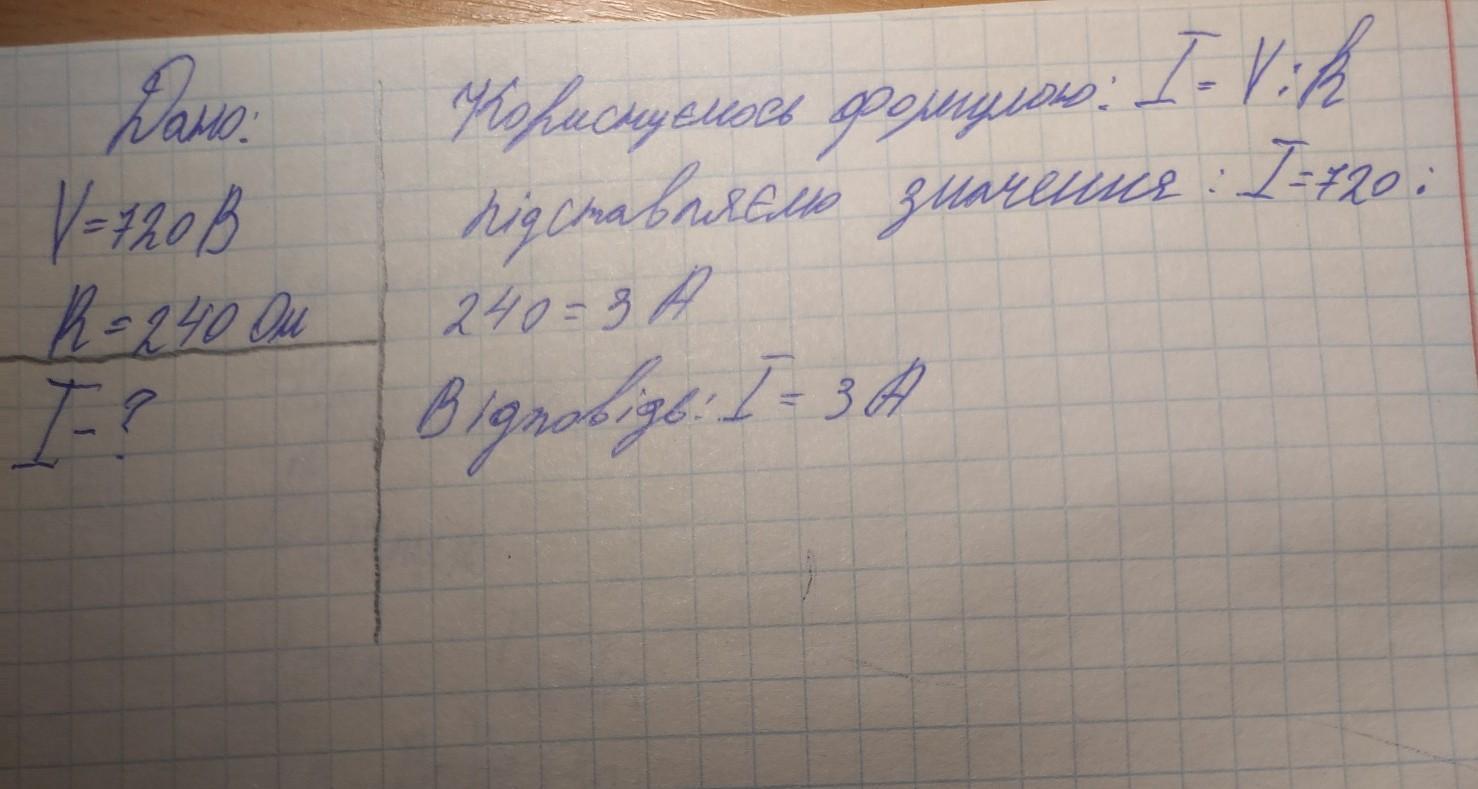 Дано:
V=720 В
R=240 Ом
I-?
Користуємось формулою: I= V:R
підставляємо значення: I=720:
240=3 А
Відповідь: I = 3 А